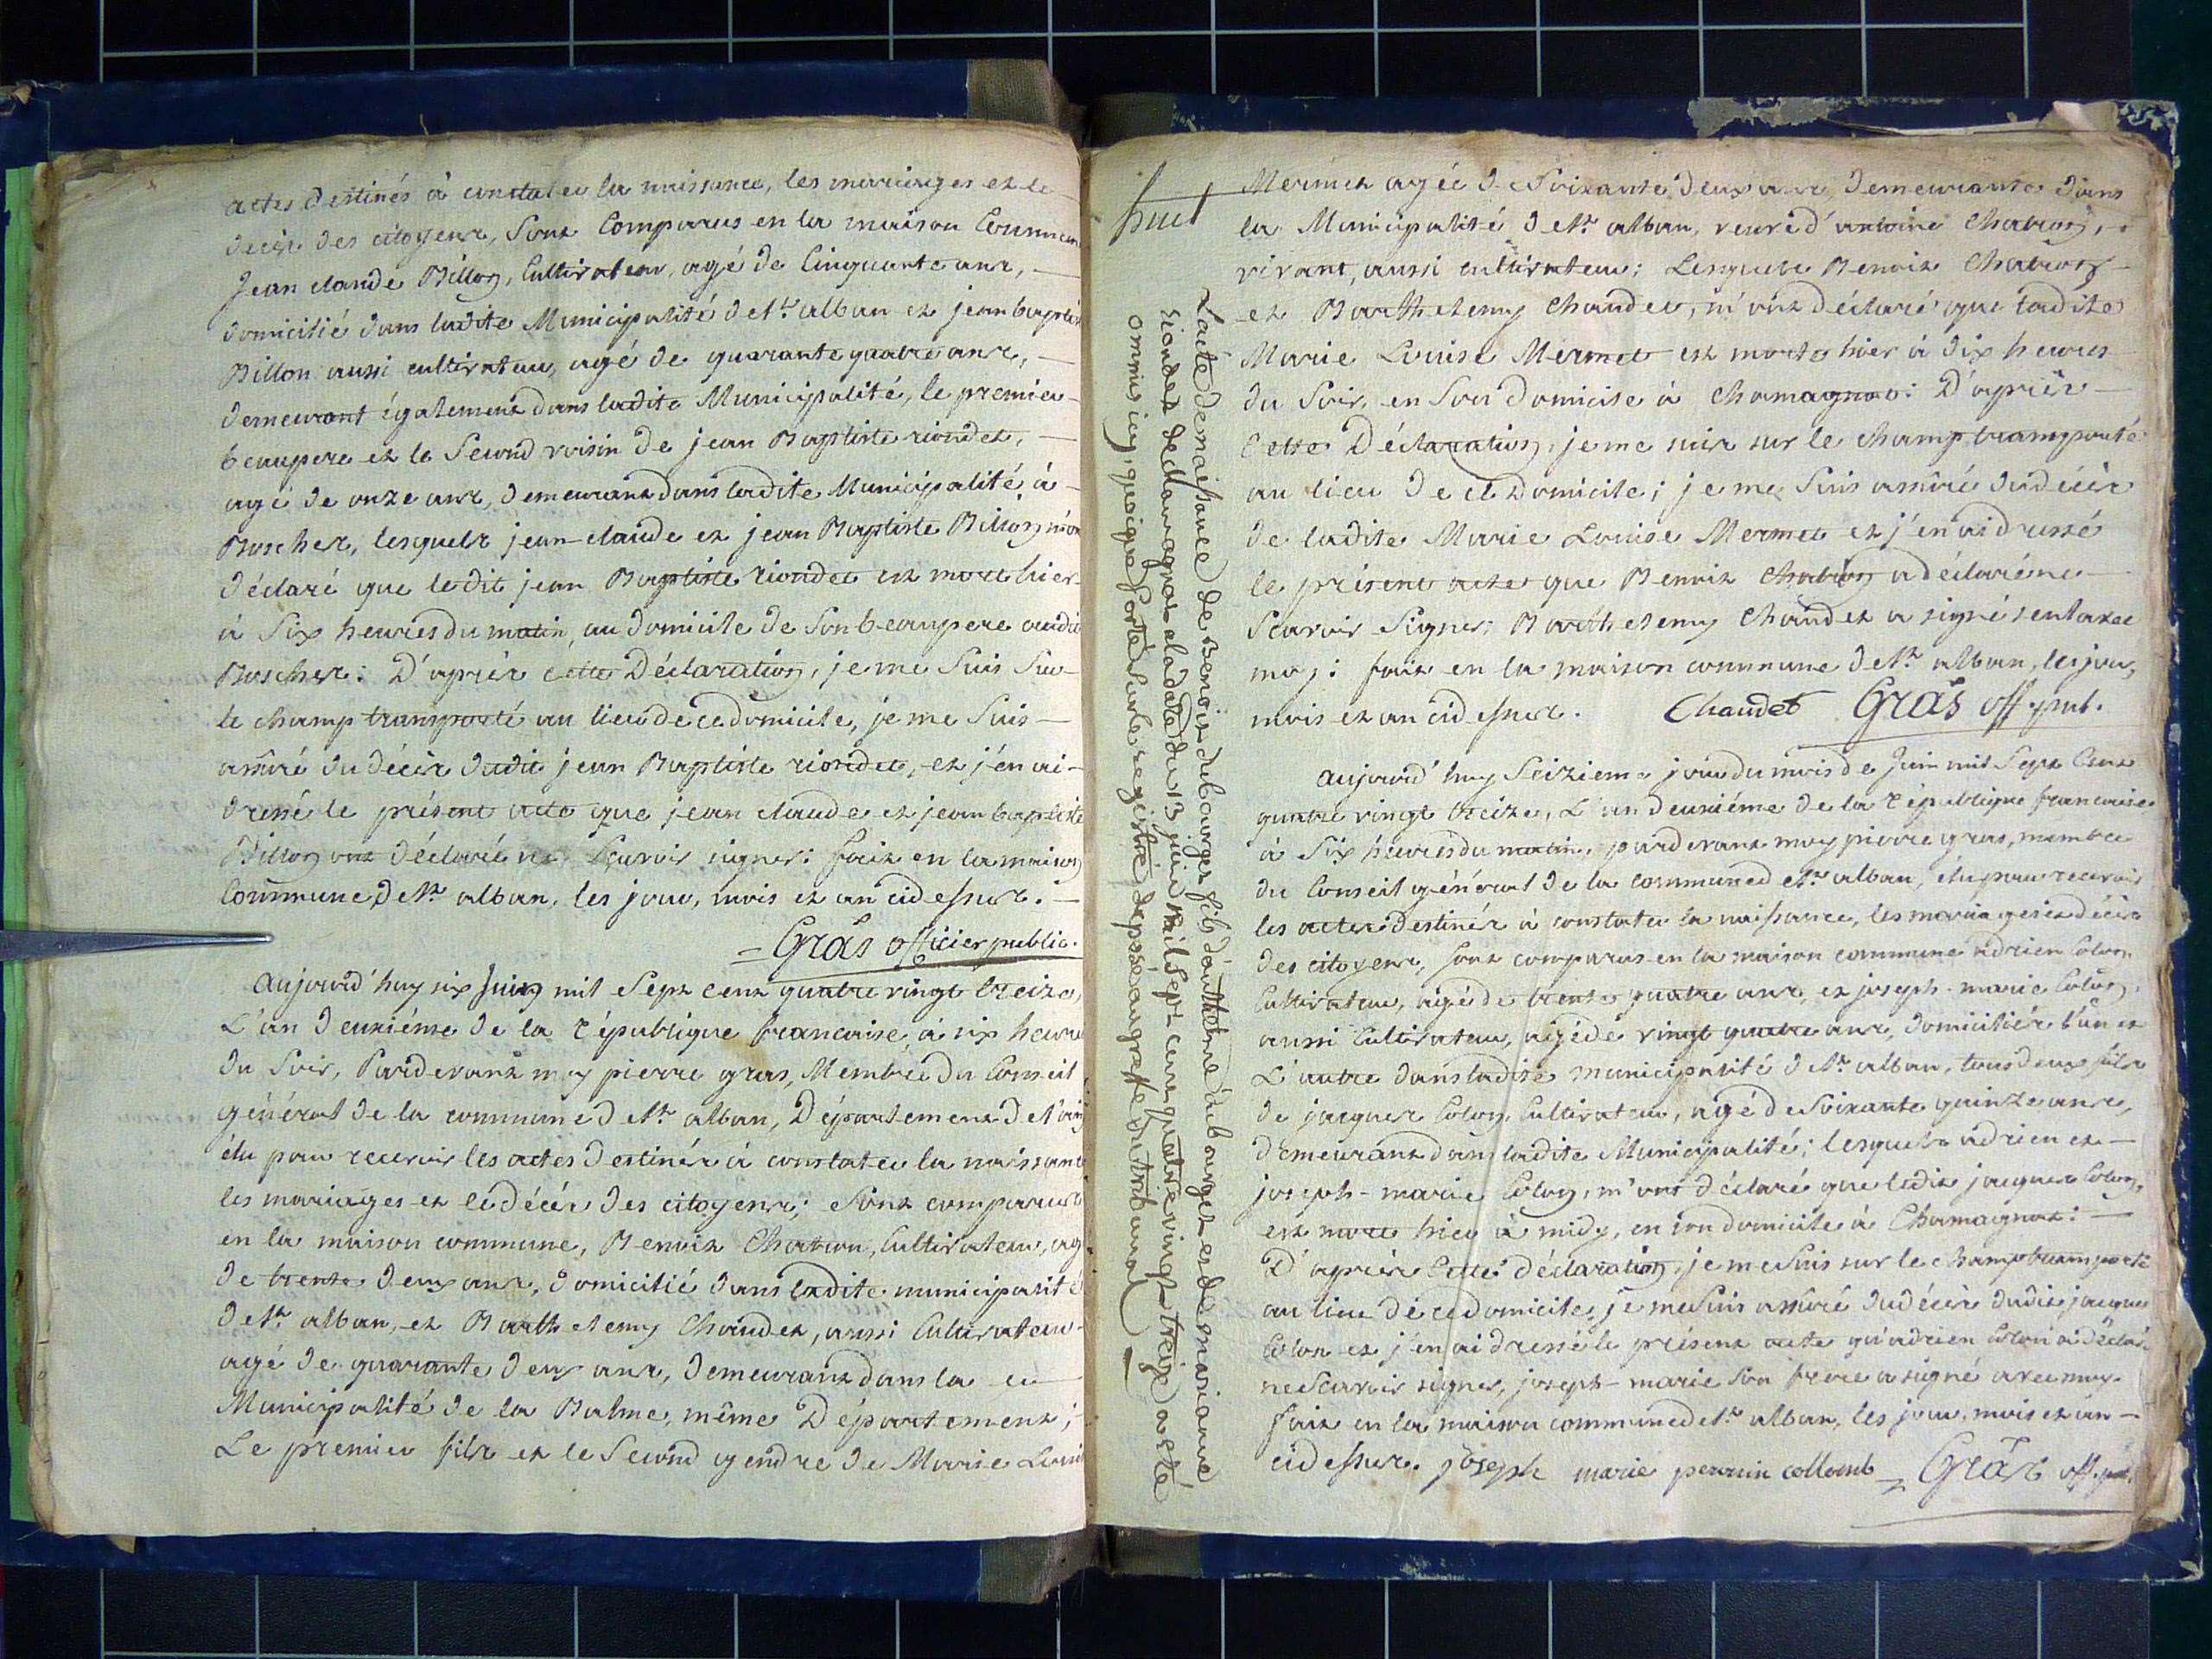 actes destinés à constater la naissance, les mariages et le
décès des citoyens, sont comparus en la maison Commune
Jean claude Billon, Cultivateur, agé de Cinquante ans, —
domicilié dans ladite Municipalité de St. alban et jean baptiste
Billon aussi cultivateur, agé de quarante quatre ans, —
demeurant également dans ladite Municipalité, le premier
beaupere et le Second voisin de jean Baptiste riondet, —
agé de onze ans, demeurant dans ladite Municipalité, à —
Boscher, lesquels jean-claude et jean Baptiste Billon m'ont
déclaré que ledit jean Baptiste riondet est mort hier
à Six heures du matin, au domicile de Son beaupere audit
Boscher: D'après cette Déclaration, je me Suis Sur
le champ transporté au lieu de ce domicile, je me Suis —
assuré du décès dudit jean Baptiste riondet, et j'en ai —
dressé le présent acte que jean claude et jean baptiste
Billon ont déclaré ne Scavoir signer: fait en la maison
Commune de St. alban, les jour, mois et an cidessus. —
= Gras officier public.
aujourd'huy six juin mil Sept cent quatre vingt treize,
L'an deuxiéme de la république francaise, à six heures
du Soir, Pardevant moy pierre gras, Membre du Conseil
général de la commune de St. alban, Département de l'ain
élu pour recevoir les actes destinés à constater la naissance
les mariages et le décès des citoyens; Sont comparus
en la maison commune, Benoit Chavon, Cultivateur, agé
de trente deux ans, domicilié dans ladite municipalité
de St. alban, et Barthelemy Chaudet, aussi Cultivateur
agé de quarante deux ans, demeurant dans la
Municipalité de la Balme, même Département;
Le premier fils et le Second gendre de Marie Louise
Mermet agée de Soixante deux ans, demeurante dans
la Municipalité de St. alban, veuve d'antoine Chavon,
vivant, aussi cultivateur; Lesquels Benoit Chavon —
et Barthelemy Chaudet, m'ont déclaré que ladite
Marie Louise Mermet est morte hier à dix heures
du Soir, en Son domicile à Chamagnat: D'après —
Cette Déclaration, je me suis sur le champ transporté
au lieu de ce domicile; je me Suis assuré du décès
de ladite Marie Louise Mermet et j'en ai dressé
le présent acte que Benoit Chavon a déclaré ne —
Scavoir Signer; Barthelemy Chaudet a signé avec
moy: fait en la maison commune de St. alban, les jour,
mois et an cidessus. Chaudet Gras off. pub.
aujourd'huy Seizieme jour du mois de Juin mil Sept Cent
quatre vingt treize, L'an deuxiéme de la république francaise,
à Six heures du matin, pardevant moy pierre gras, membre
du Conseil général de la commune de St. alban, élu pour recevoir
les actes destinés à constater la naissance, les mariages et décès
des citoyens, sont comparus en la maison commune adrien Colon
Cultivateur, agé de trente quatre ans, et joseph-marie Colon,
aussi Cultivateur, agé de vingt quatre ans, domiciliés l'un et
L'autre dans ladite municipalité de St. alban, tous deux fils
de jacques Colon, Cultivateur, agé de Soixante quinze ans,
demeurant dans ladite Municipalité; lesquels adrien et —
joseph-marie Colon, m'ont déclaré que ledit jacques Colon,
est mort hier à midy, en son domicile à Chamagnat: —
D'après Cette déclaration, je me Suis sur le champ transporté
au lieu de ce domicile, je me Suis assuré du décès dudit jacques
Colon et j'en ai dressé le présent acte qu'adrien Colon a déclaré
ne Scavoir signer, joseph-marie Son frere a signé avec moy.
fait en la maison commune de St. alban, les jour, mois et an —
cidessus. joseph marie perrin collomb = Gras off. pub.
L'acte de naissance de Benoit dubourget fils d'anthelme dubourget et de marie aimé
riondet de chamagnat a la date du 13 juin mil sept cent quatre vingt treize a été
ommis icy quoique porté sur le registre depossé au greffe du tribunal